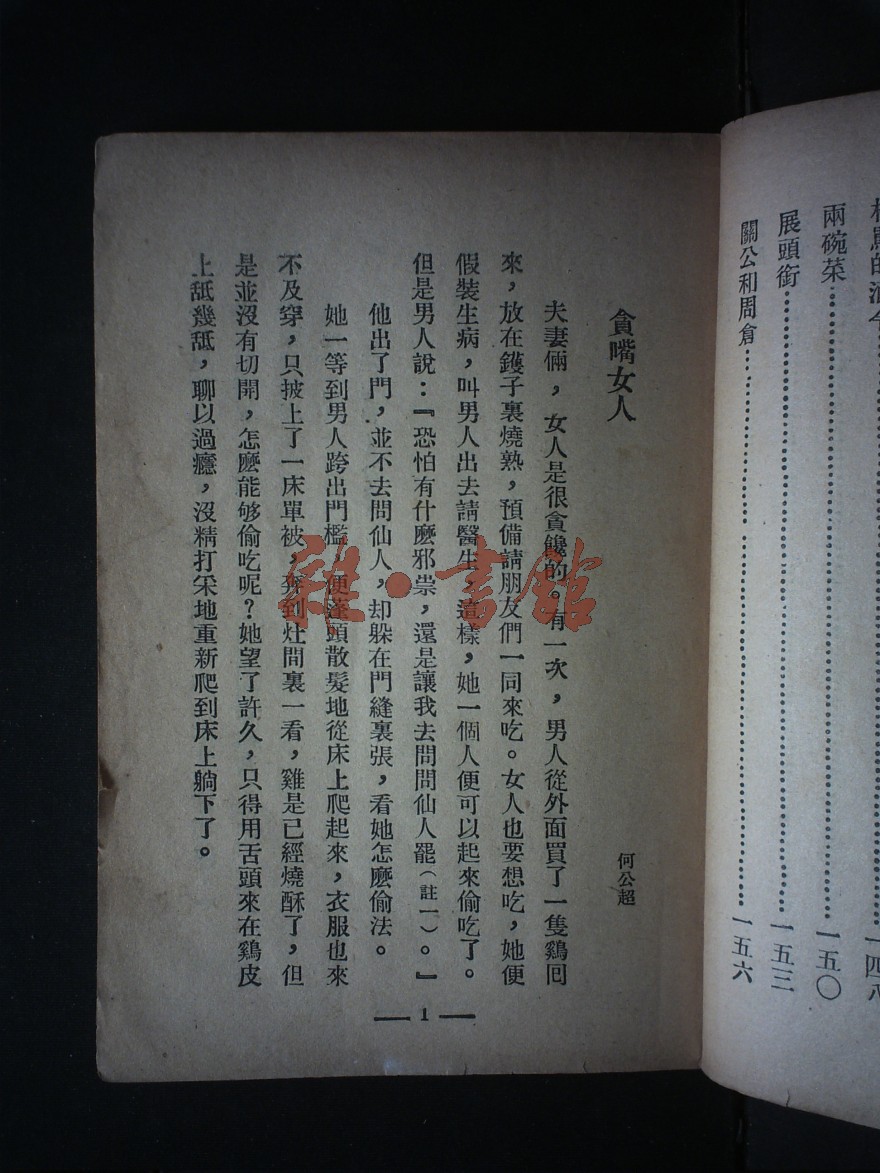 兩碗菜……一五〇
展頭銜……一五三
關公和周倉……一五六
貪嘴女人
何公超
夫妻倆，女人是很貪饞的。有一次，男人從外面買了一隻鷄囘
來，放在鑊子裏燒熟，預備請朋友們一同來吃。女人也要想吃，她便
假裝生病，叫男人出去請醫生，這樣，她一個人便可以起來偷吃了。
但是男人說：『恐怕有什麼邪祟，還是讓我去問問仙人罷（註一）。』
他出了門，並不去問仙人，却躲在門縫裏張，看她怎麼偷法。
她一等到男人跨出門檻，便蓬頭散髮地從床上爬起來，衣服也來
不及穿，只披上了一床單被，奔到灶間裏一看，雞是已經燒酥了，但
是並沒有切開，怎麼能够偷吃呢？她望了許久，只得用舌頭來在鷄皮
上舐幾舐，聊以過癮，沒精打采地重新爬到床上躺下了。
— 1 —
雜·書館